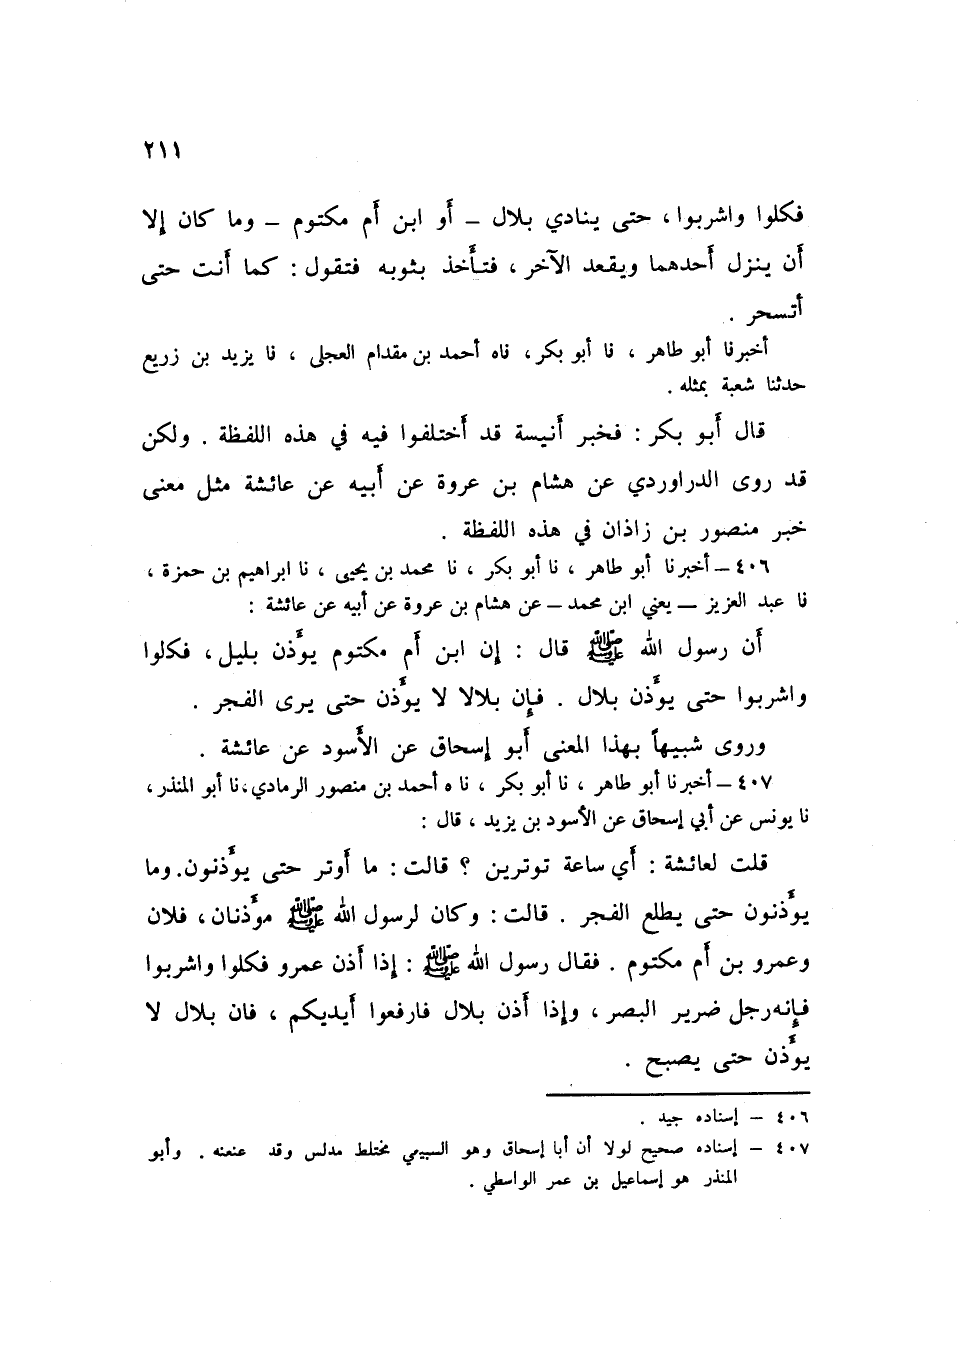 ٢١١
فكلوا واشربوا، حتى ينادي بلال _ أَو ابن أَم مكتوم _ وما كان إلا
أَن ينزل أَحدهما ويقعد الآخر ، فتأَخذ بثوبه فتقول : كما أَنت حتى
أَتسحر .
أخبرنا أبو طاهر ، نا أبو بكر، ناه أحمد بن مقدام العجلى ، نا يزيد بن زريع
حدثنا شعبة بمثله .
قال أَبو بكر : فخبر أَنيسة قد أَختلفوا فيه في هذه اللفظة . ولكن
قد روى الدراوردي عن هشام بن عروة عن أَبيه عن عائشة مثل معنى
خبر منصور بن زاذان في هذه اللفظة .
٤٠٦ _ أخبرنا أبو طاهر ، نا أبو بكر ، نا محمد بن يحيى ، نا ابراهيم بن حمزة ،
نا عبد العزيز _ يعني ابن محمد _ عن هشام بن عروة عن أبيه عن عائشة :
أَن رسول الله ﷺ قال : إن ابن أَم مكتوم يؤَذن بليل، فكلوا
واشربوا حتى يؤَذن بلال . فإن بلالا لا يؤَذن حتى يرى الفجر .
وروى شبيهاً بهذا المعنى أَبو إسحاق عن الأَسود عن عائشة .
٤٠٧ _ أخبرنا أبو طاهر ، نا أبو بكر ، نا ه أحمد بن منصور الرمادي،نا أبو المنذر،
نا يونس عن أبي إسحاق عن الأسود بن يزيد ، قال :
قلت لعائشة : أَي ساعة توترين ؟ قالت : ما أَوتر حتى يؤَذنون. وما
يؤَذنون حتى يطلع الفجر . قالت : وكان لرسول الله ﷺ مؤَذنان، فلان
وعمرو بن أَم مكتوم . فقال رسول الله ﷺ : إذا أَذن عمرو فكلوا واشربوا
فإنه رجل ضرير البصر، وإذا أَذن بلال فارفعوا أَيديكم ، فان بلال لا
يؤَذن حتى يصبح .
٤٠٦ _ إسناده جيد .
٤٠٧ _ إسناده صحيح لولا أن أبا إسحاق وهو السبيعي مختلط مدلس وقد عنعنه . وأبو
المنذر هو إسماعيل بن عمر الواسطي .